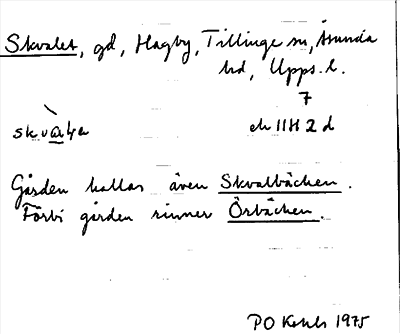 Skvalet, gd, Hagby, Tillinge sn, Åsunda
hd, Upps. l.
7
ek 11H 2 d
Gården kallas även Skvalbäcken.
Förbi gården rinner Örbäcken.
PO 1975